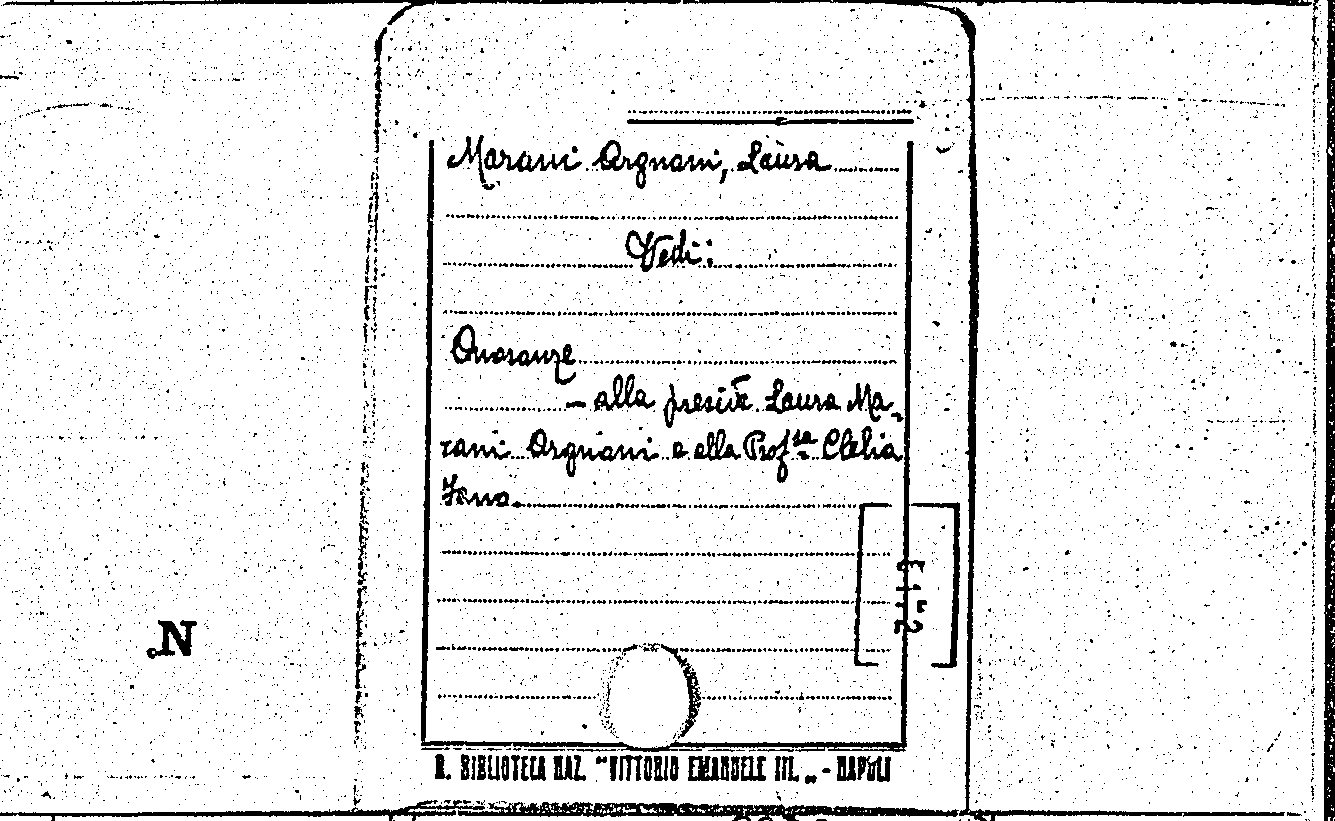 Marani Argnani, Laura
Vedi:
Onoranze
— alla preside Laura Ma-
rani Argnani e alla Prof.ssa Clelia
Fano.
N
R. BIBLIOTECA NAZ. "VITTORIO EMANUELE III." - NAPOLI